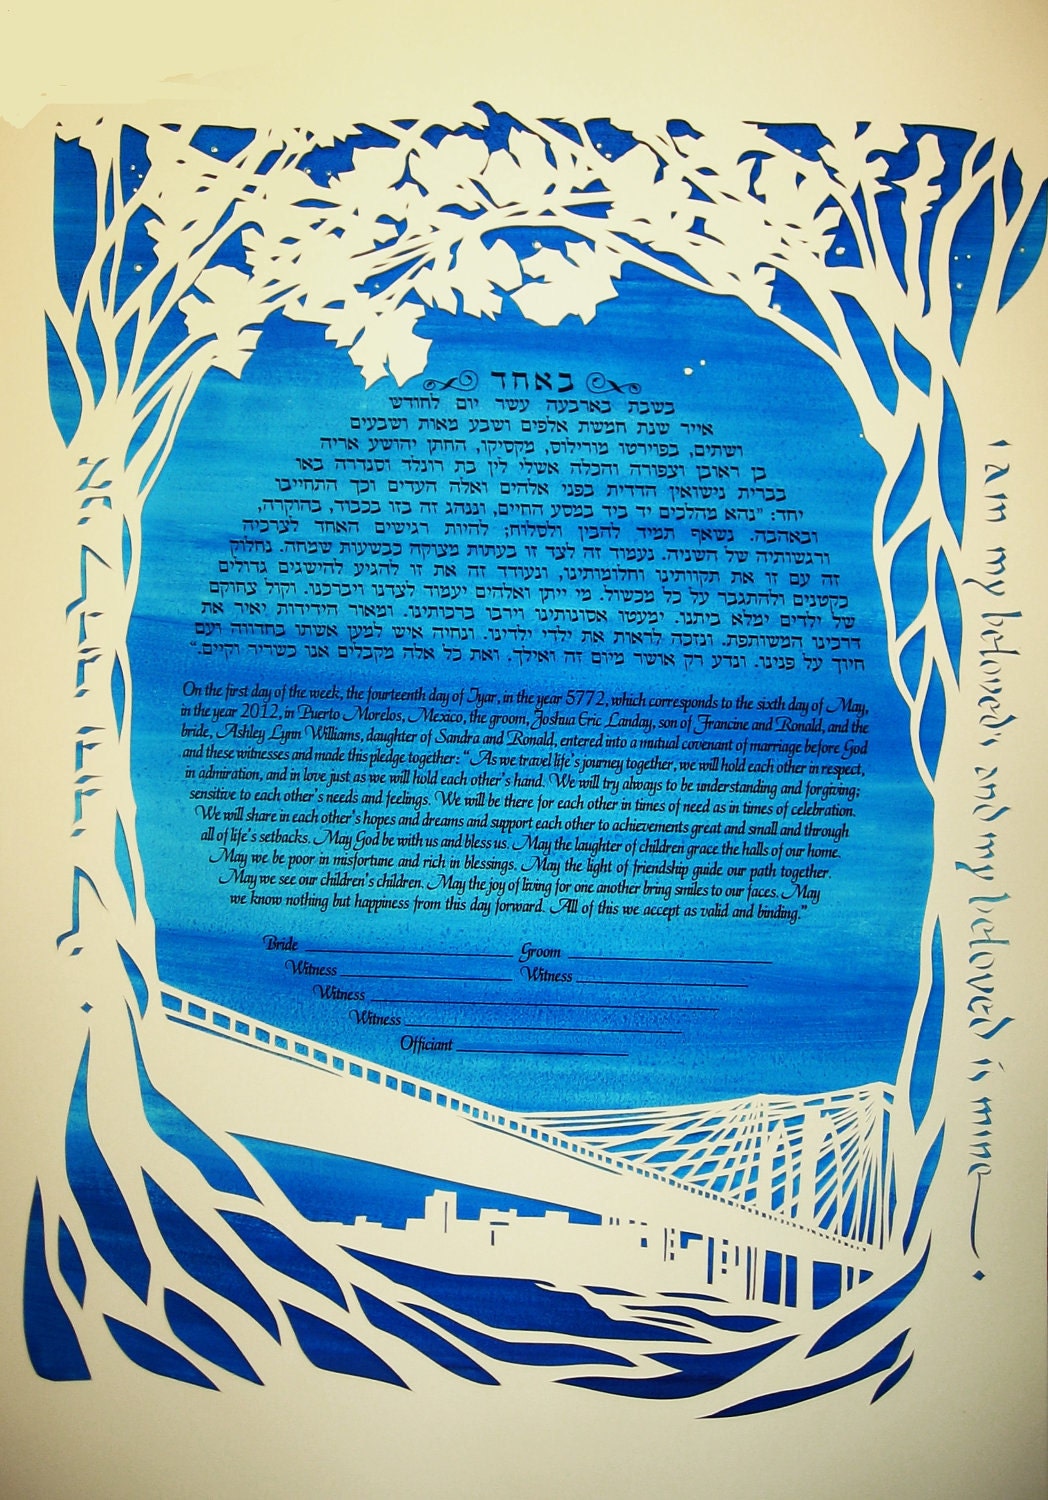 באחד
בשבת בארבעה עשר יום לחודש
אייר שנת חמשת אלפים ושבע מאות ושבעים
ושתים, בפוירטו מורילוס, מקסיקו, החתן יהושע אריה
בן ראובן וצפורה והכלה אשלי לין בת רונלד וסנדרה באו
בברית נישואין הדדית בפני אלהים ואלה העדים וכך התחייבו
יחד: "נהא מהלכים יד ביד במסע החיים, וננהג זה בזו בכבוד, בהוקרה,
ובאהבה. נשאף תמיד להבין ולסלוח; להיות רגישים האחד לצרכיה
ורגשותיה של השניה. נעמוד זה לצד זו בעתות מצוקה כבשעות שמחה. נחלוק
זה עם זו את תקוותינו וחלומותינו, ונעודד זה את זו להגיע להישגים גדולים
כקטנים ולהתגבר על כל מכשול. מי ייתן ואלהים יעמוד לצדנו ויברכנו. וקול צחוקם
של ילדים ימלא ביתנו. ימעטו אסונותינו וירבו ברכותינו. ומאור הידידות יאיר את
דרכינו המשותפת. ונזכה לראות את ילדי ילדינו. ונחיה איש למען אשתו בחדווה ועם
חיוך על פנינו. ונדע רק אושר מיום זה ואילך. ואת כל אלה מקבלים אנו כשריר וקיים."
On the first day of the week, the fourteenth day of Iyar, in the year 5772, which corresponds to the sixth day of May,
in the year 2012, in Puerto Morelos, Mexico, the groom, Joshua Eric Landay, son of Francine and Ronald, and the
bride, Ashley Lynn Williams, daughter of Sandra and Ronald, entered into a mutual covenant of marriage before God
and these witnesses and made this pledge together: "As we travel life's journey together, we will hold each other in respect,
in admiration, and in love just as we will hold each other's hand. We will try always to be understanding and forgiving;
sensitive to each other's needs and feelings. We will be there for each other in times of need as in times of celebration.
We will share in each other's hopes and dreams and support each other to achievements great and small and through
all of life's setbacks. May God be with us and bless us. May the laughter of children grace the halls of our home.
May we be poor in misfortune and rich in blessings. May the light of friendship guide our path together.
May we see our children's children. May the joy of living for one another bring smiles to our faces. May
we know nothing but happiness from this day forward. All of this we accept as valid and binding."
Bride Groom
Witness Witness
Witness
Witness
Officiant
אני לדודי ודודי לי
I am my beloved's and my beloved is mine